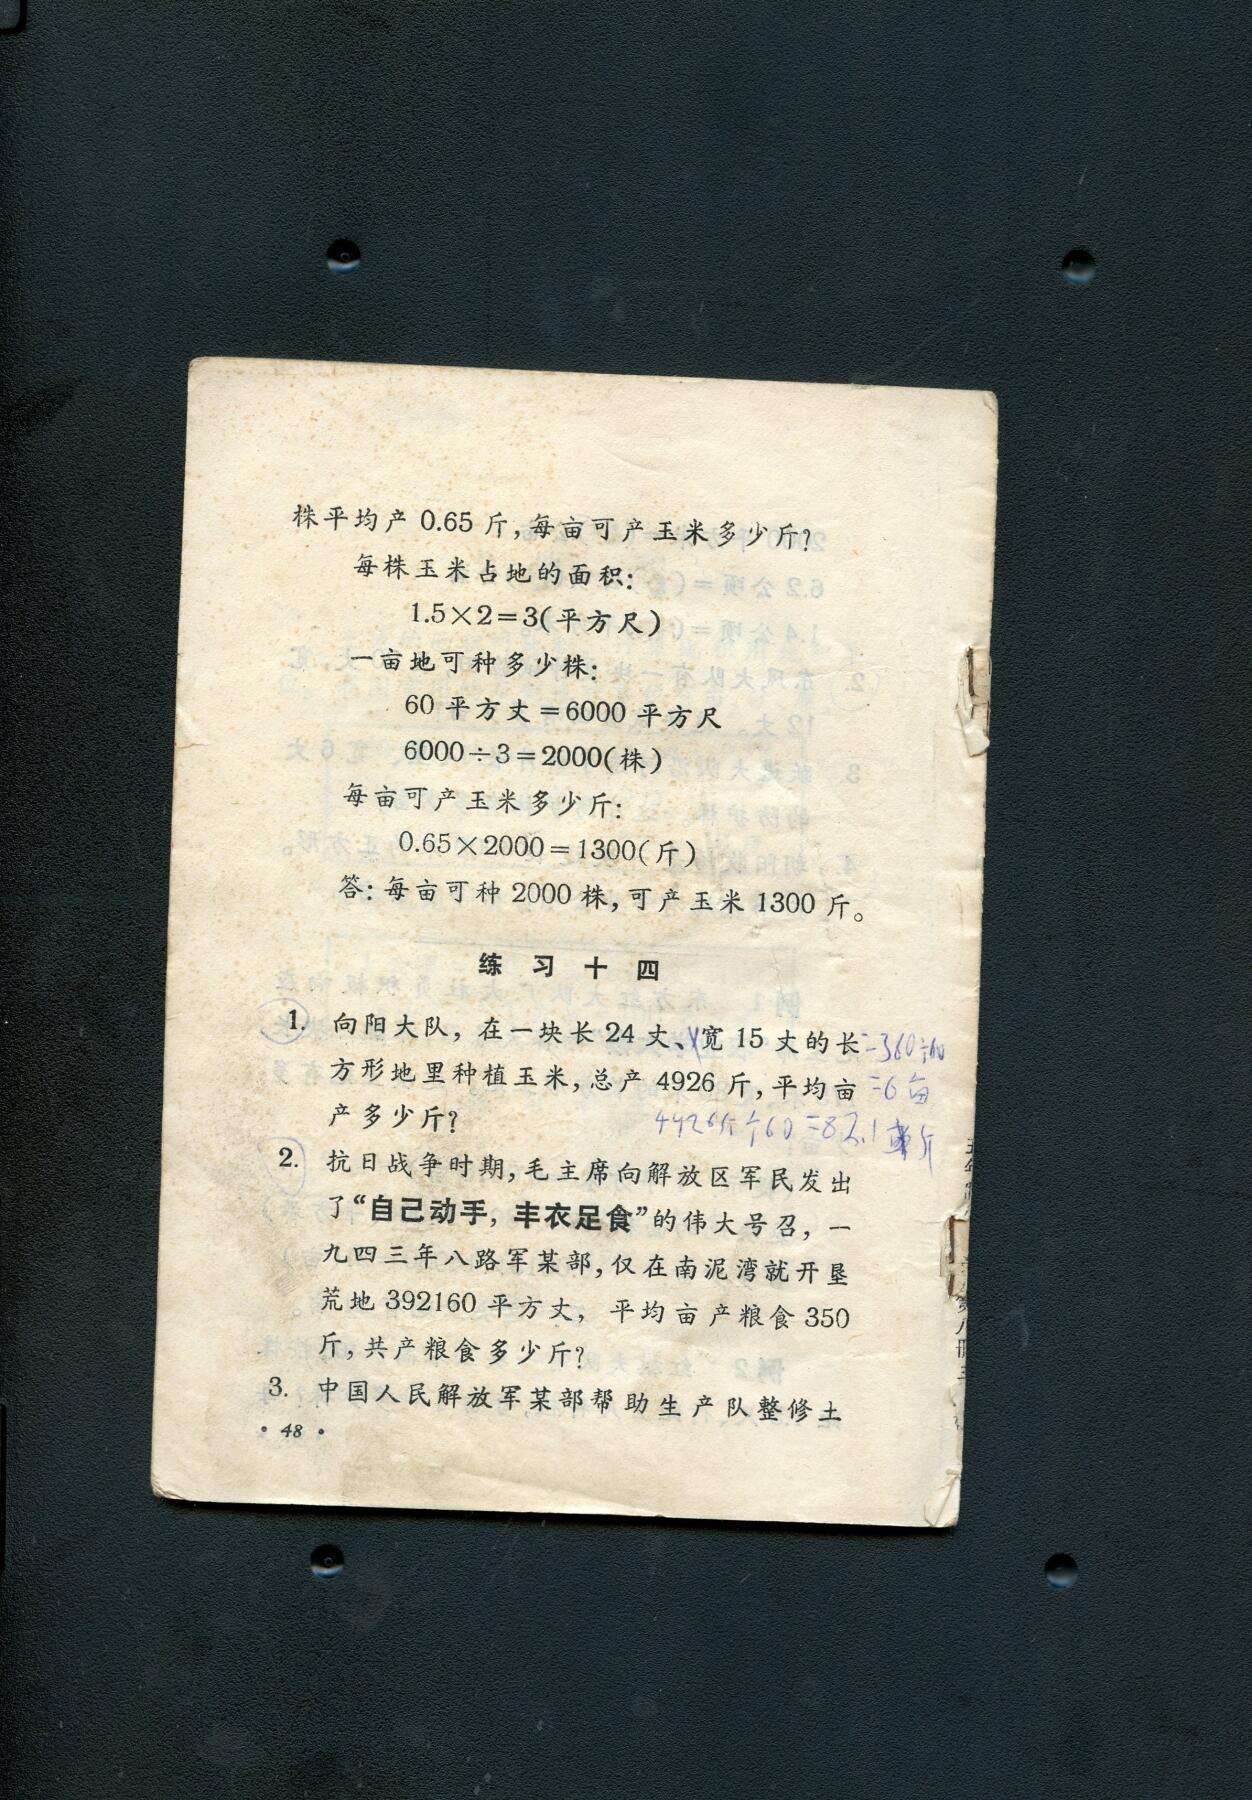 株平均产 0.65 斤，每亩可产玉米多少斤？
每株玉米占地的面积：
1.5×2＝3(平方尺)
一亩地可种多少株：
60 平方丈＝6000 平方尺
6000÷3＝2000(株)
每亩可产玉米多少斤：
0.65×2000＝1300(斤)
答：每亩可种 2000 株，可产玉米 1300 斤。
练习十四
1. 向阳大队，在一块长 24 丈、宽 15 丈的长
=360÷60
方形地里种植玉米，总产 4926 斤，平均亩
=6亩
产多少斤？
2. 抗日战争时期，毛主席向解放区军民发出
了“自己动手，丰衣足食”的伟大号召，一
九四三年八路军某部，仅在南泥湾就开垦
荒地 392160 平方丈， 平均亩产粮食 350
斤，共产粮食多少斤？
3. 中国人民解放军某部帮助生产队整修土
• 48 •